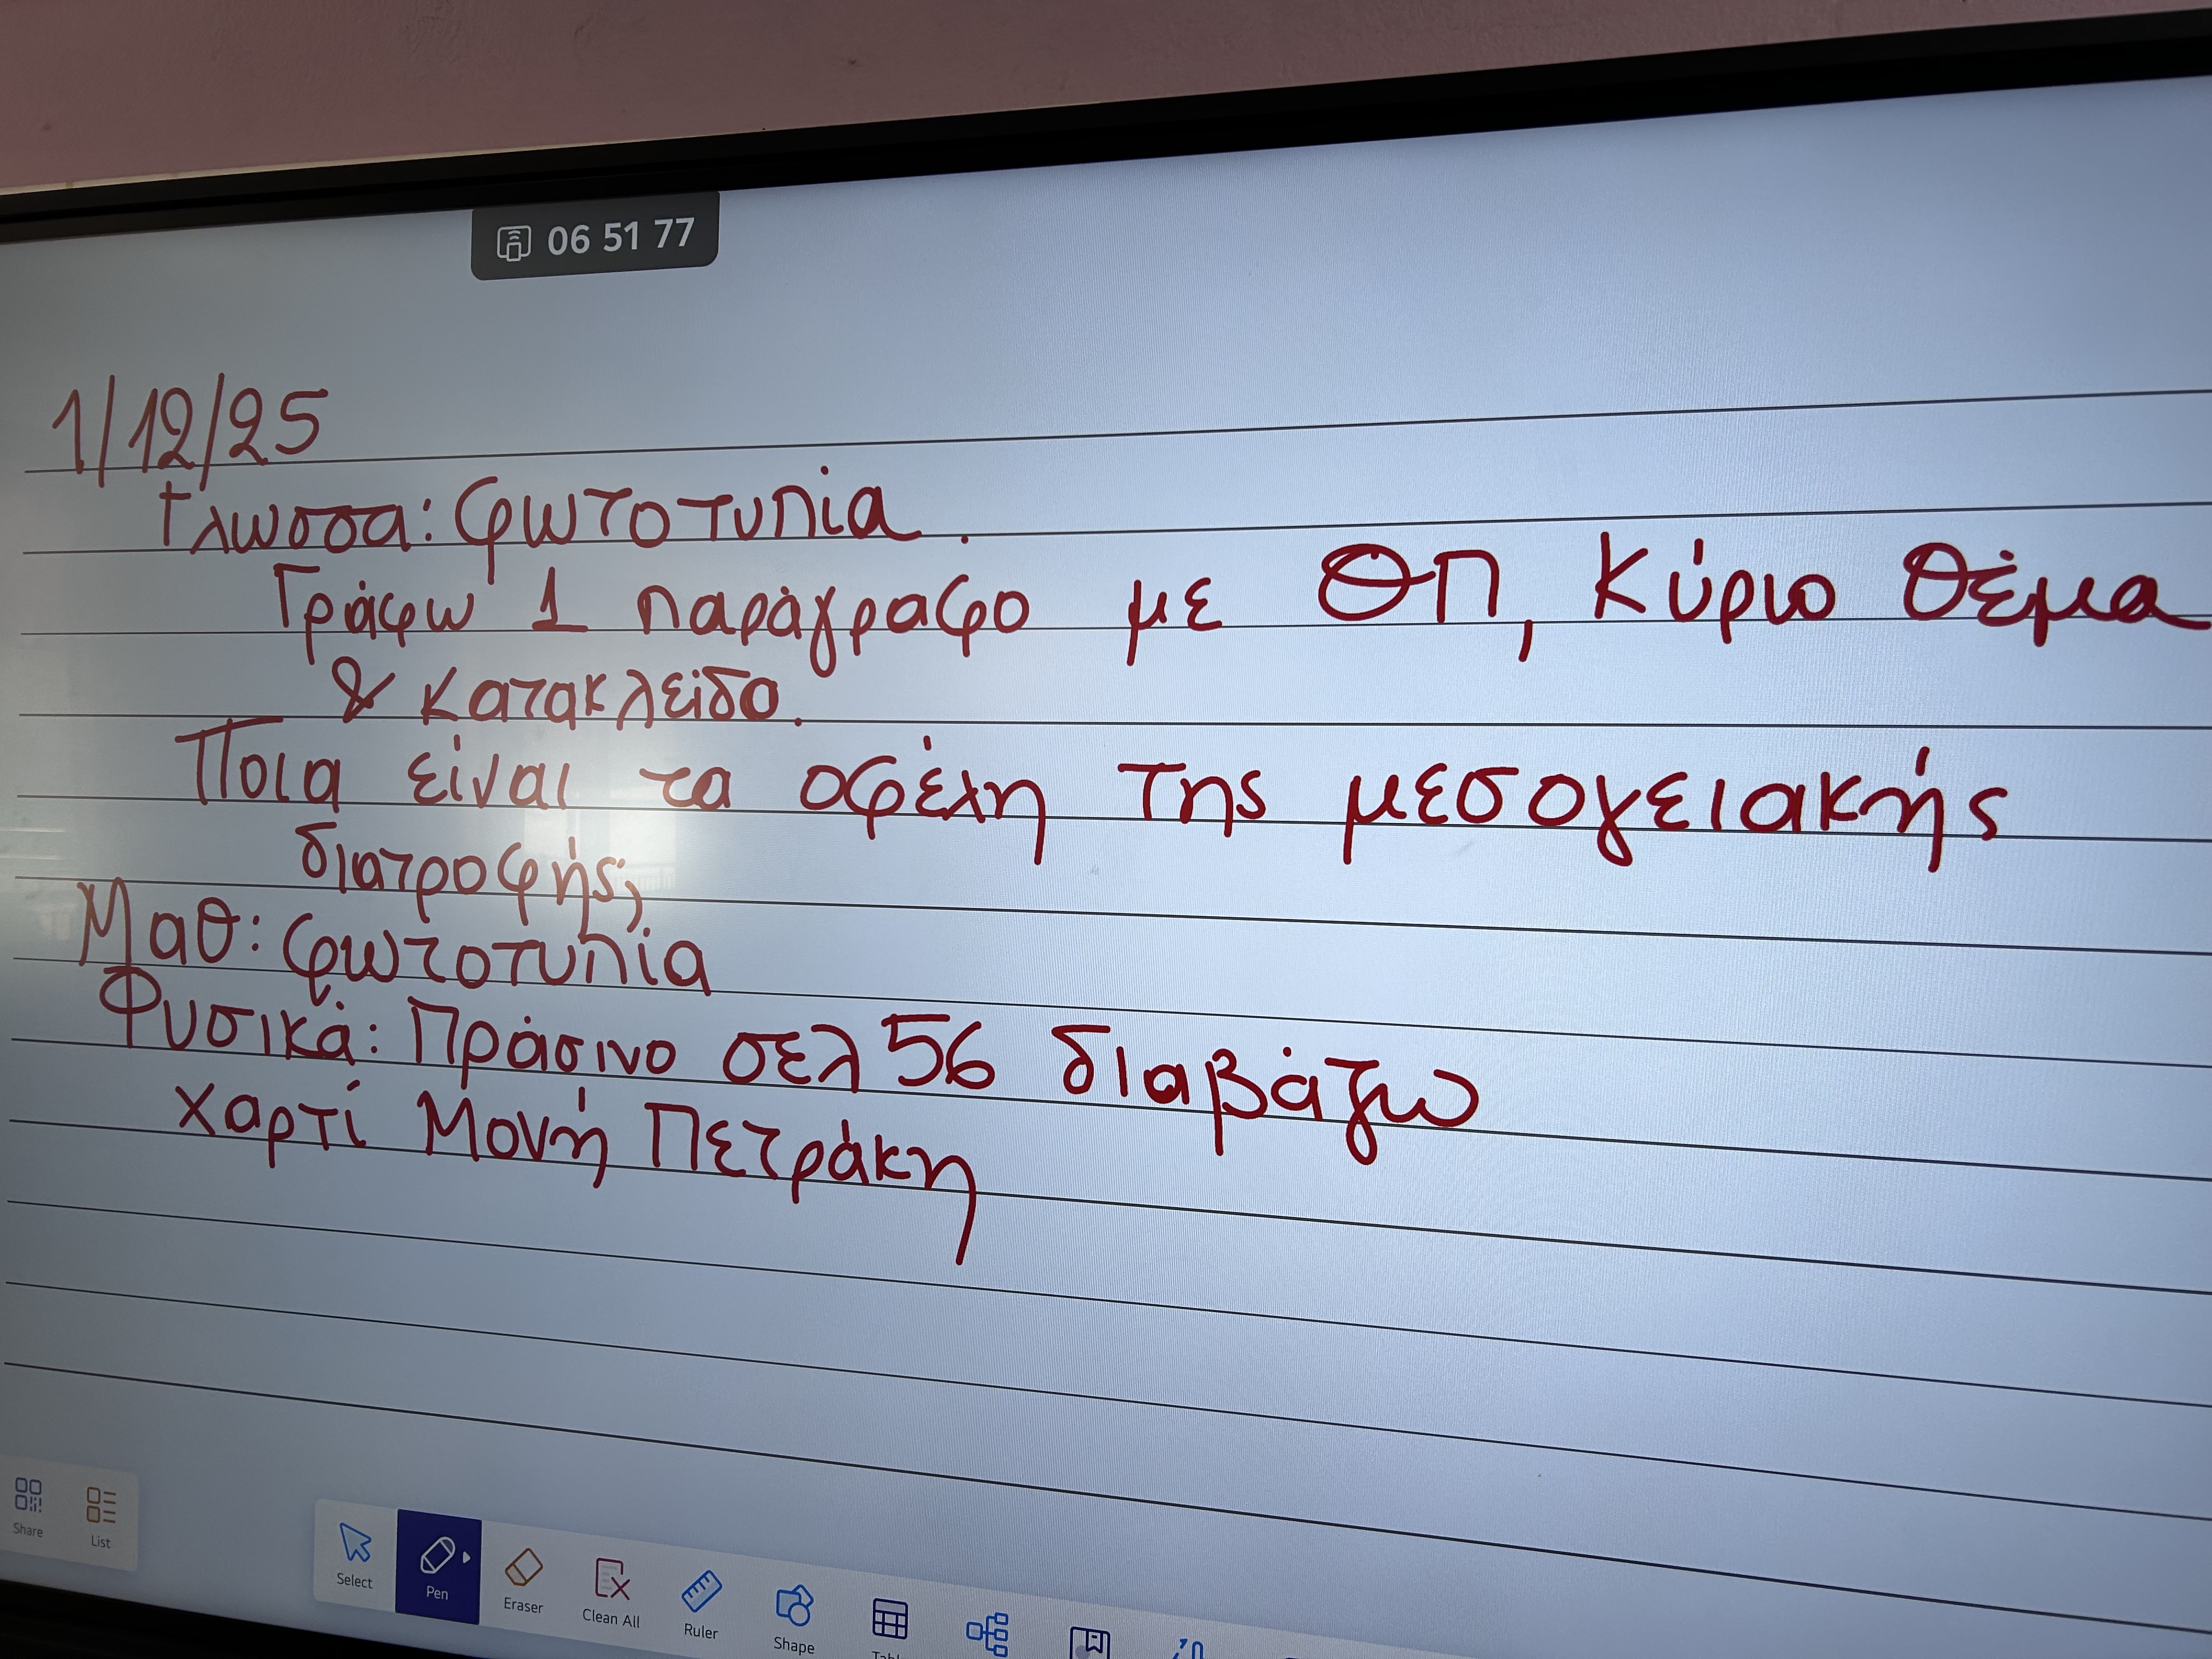 06 51 77
1/12/25
Γλωσσα: φωτοτυπία.
Γράφω 1 παράγραφο με ΘΠ, κύριο θέμα
& κατακλείδα.
Ποια είναι τα οφέλη της μεσογειακής
διατροφής;
Μαθ: φωτοτυπία
Φυσικά: Πράσινο σελ 56 διαβάζω
χαρτί Μονή Πετράκη
Share
List
Select
Pen
Eraser
Clean All
Ruler
Shape